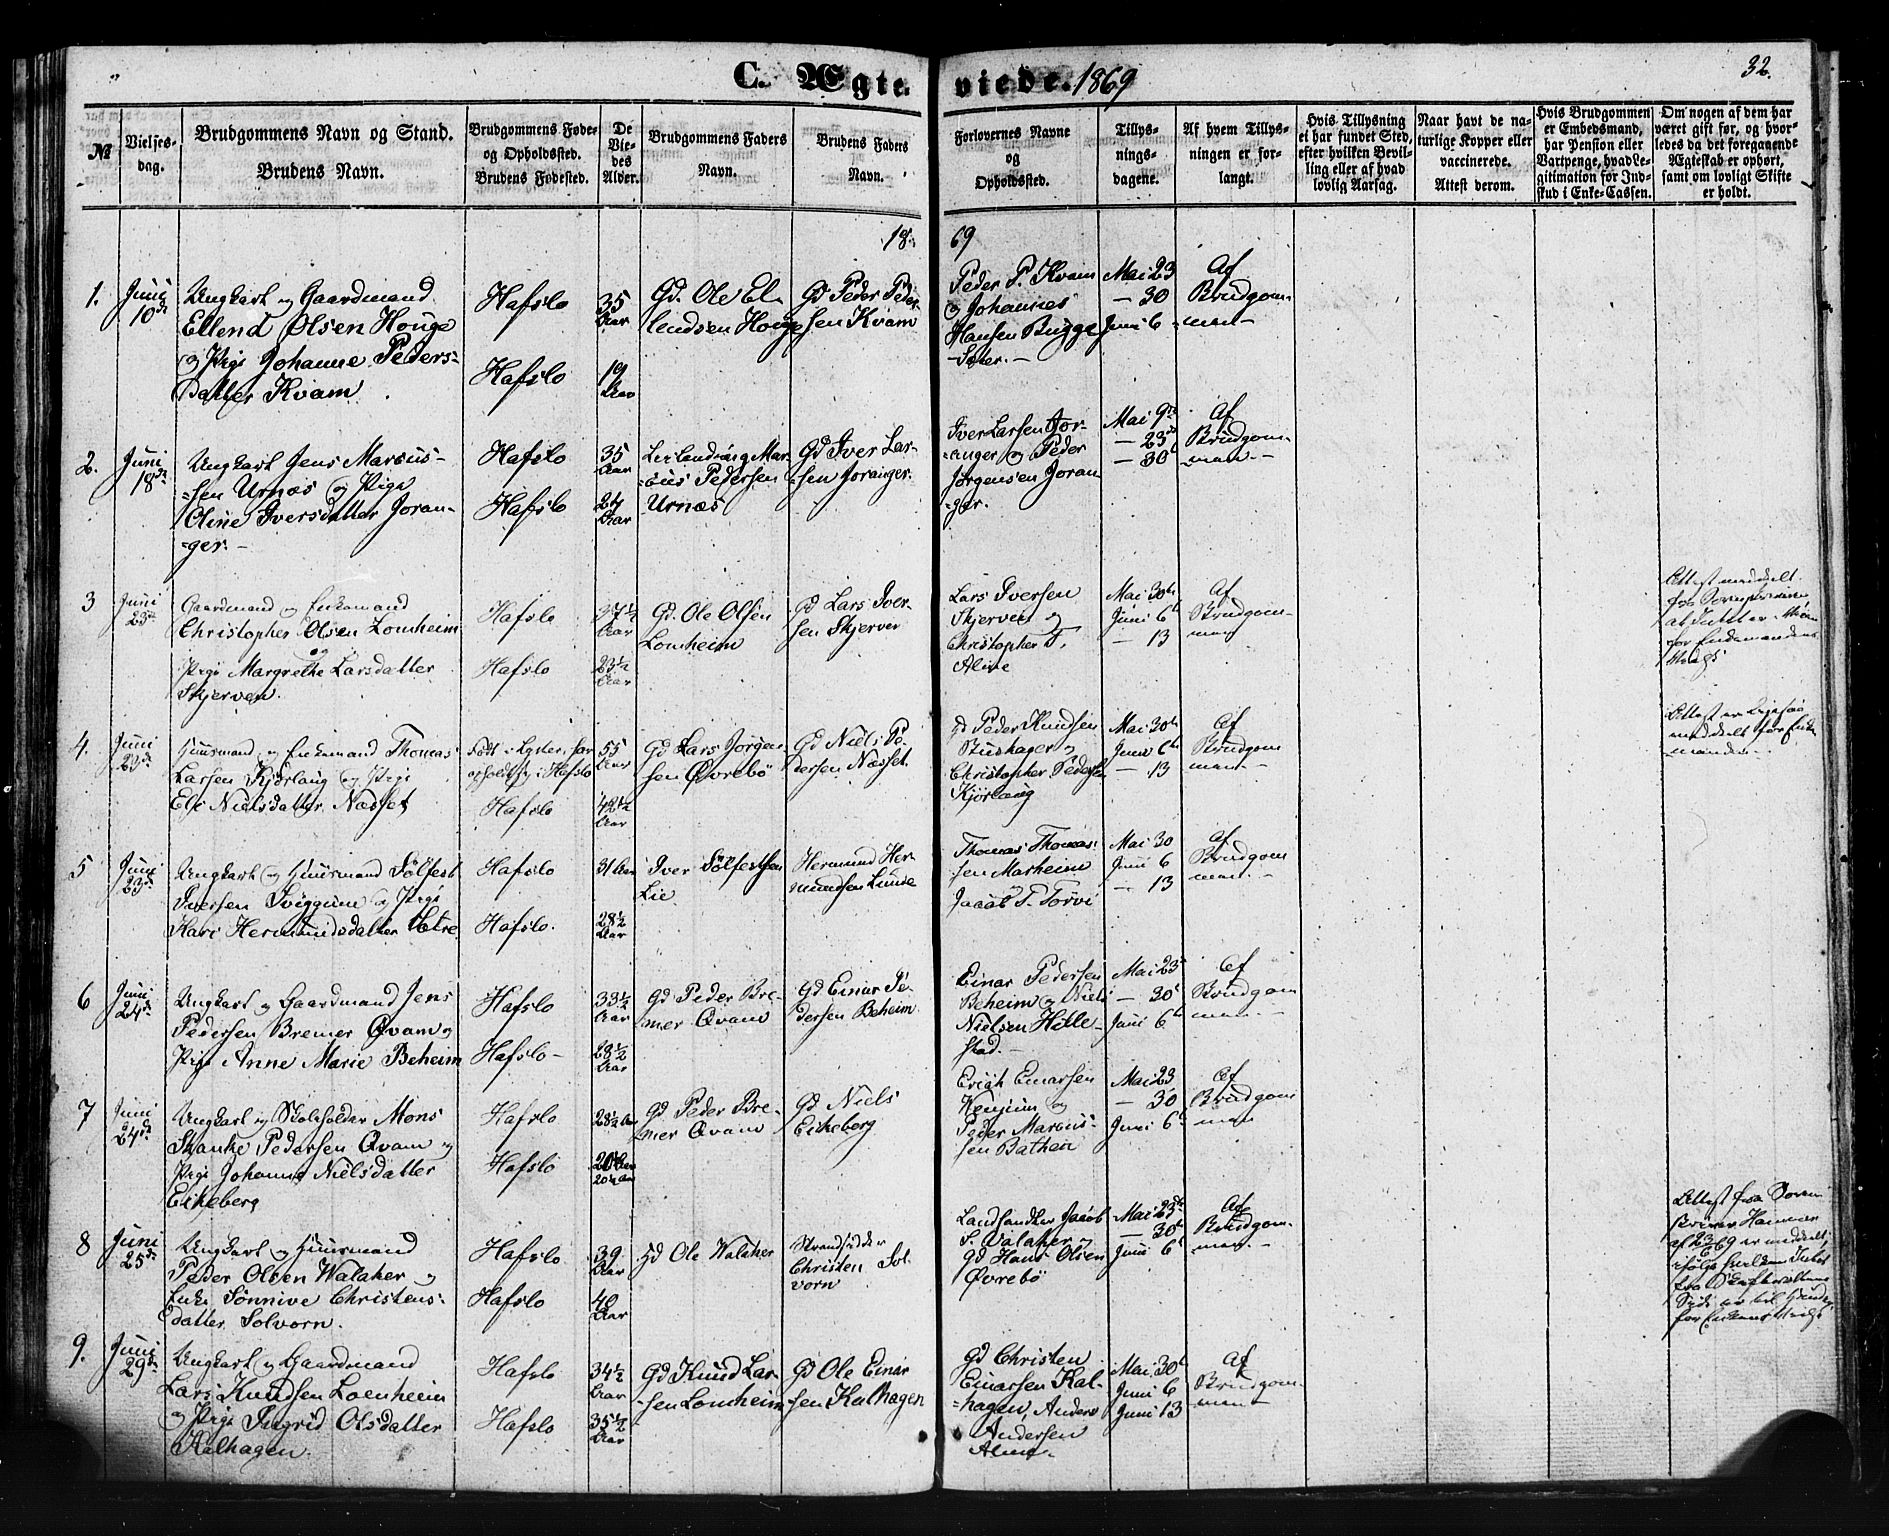 C. Ægte
viede. 1869
32.
№
Vielses-
dag.
Brudgommens Navn og Stand.
Brudens Navn.
Brudgommens Føde-
og Opholdssted.
Brudens Fødested.
De
Vie-
des
Alder.
Brudgommens Faders
Navn.
Brudens Faders
Navn.
Forlovernes Navne
og
Opholdssted.
Tillys-
nings-
dagene.
Af hvem Tillys-
ningen er for-
langt.
Hvis Tillysning
ei har fundet Sted,
efter hvilken Bevil-
ling eller af hvad
lovlig Aarsag.
Naar havt de na-
turlige Kopper eller
vaccinerede.
Attest derom.
Hvis Brudgommen
er Embedsmand,
har Pension eller
Vartpenge, hvad Le-
gitimation for Ind-
skud i Enke-Cassen.
Om nogen af dem har
været gift før, og hvor-
ledes da det foregaaende
Ægteskab er ophørt,
samt om lovligt Skifte
er holdt.
18
69
1.
Juni
10de
Ungkarl og Gaardmand
Ellend Olsen Houge
og Pige Johanne Peders-
datter Kvam
Hafslo
Hafslo
35
Aar
19
Aar
Gd. Ole El-
lendsen Houge
Gd Peder Peder
sen Kvam
Peder P. Kvam
og Johannes
Hansen Bugge
Sæter. -
Mai 23
- 30
Juni 6
Af
Brudgom-
men -
2.
Juni
18de
Ungkarl Jens Marcus-
=sen Urnæs og Pige
Oline Iversdatter Joran-
=ger. -
Hafslo
Hafslo
35
Aar
24
Aar
=cus Pedersen
Urnæs
Gd Iver Lar-
=sen Joranger.
Iver Larsen Jor-
=anger og Peder
Jørgensen Joran
=ger.
Mai 9de
- 23de
- 30
Af
Brudgom-
men. -
3
Juni
23de
Gaardmand og Enkemand
Christopher Olsen Lomheim
og
Pige Margrethe Larsdatter
Skjerven.
Hafslo
Hafslo
37½
Aar
23½
Aar
Gd. Ole Olsen
Lomheim
Gd Lars Iver-
sen Skjerven
Lars Iversen
Skjerven og
Christopher T.
Alme
Mai 30te
Juni 6te
- 13
Af
Brudgom-
men
Attest meddelt
4.
Juni
23de
Huusmand og Enkemand Thomas
Larsen Kjørlaug og Pige
Eli Nielsdatter Næsset
Født i Lyster, har
opholdt sig i Hafslo
Hafslo
55
Aar
42½
Aar
Gd Lars Jørgen-
sen Øvrebø
Gd Niels Pe-
dersen Næsset.
Gd Peder Knudsen
Buskager og
Christopher Pedersen
Kjørlaug
Mai 30te
Juni 6te
- 13
Af
Brudgom
men -
meddelt for Enke
manden -
5
Juni
23de
Ungkarl og Huusmand Sølfest
Iversen Sviggum og Pige
Kari Hermundsdatter Hetre.
Hafslo
Hafslo.
31 Aar
28½
Aar
Iver Sølfestsen
Lie.
Hermund Her-
mundsen Lunde
Thomas Thomas-
sen Marheim
og
Jacob T. Torvi
Mai 30
Juni 6
- 13
af
Brudgom
men. -
6
Juni
24de
Ungkarl og Gaardmand Jens
Pedersen Bremer Qvam og
Pige Anne Marie Beheim
Hafslo
Hafslo -
33½
Aar
28½
Aar
Gd Peder Bre-
mer Qvam
Gd Einar Pe-
dersen Beheim
Einar Pedersen
Beheim og Niels
Nielsen Hille-
stad. -
Mai 23de
- 30te
Juni 6te
Af
Brudgom
men. -
7
Juni
24de
Ungkarl og Skoleholder Mons
Skanke Pedersen Qvam og
Pige Johanne Nielsdatter
Eikeberg
Hafslo
Hafslo
28½ Aar
20½ Aar
Gd Peder Bre-
mer Qvam
Gd Niels
Eikeberg
Erich Einarsen
og
Peder Marcus-
sen Bathen
Mai 23
- 30
Juni 6te
Af
Brudgom
men
8
Juni
25de
Ungkarl og Huusmand
Peder Olsen Walaker og
Enke Sønnive Christens-
datter Solvorn.
Hafslo
Hafslo
39
Aar
40
Aar
Gd Ole Walaker
Strandsidder
Christen Sol-
vorn
Landhandler Jacob
S. Valaker og
Gd Hans Olsen
Øvrebø
Mai 23de
- 30te
Juni 6te
Af
Brudgom-
men. -
Attest fra Soren-
skriver
9.
Juni
29de
Ungkarl og Gaardmand
Lars Knudsen Loenheim
og Pige Ingrid Olsdatter
Kalhagen.
Hafslo
Hafslo
34½
Aar
35½
Aar
Gd Knud Lar-
sen Lomheim
Gd Ole Einar
sen Kalhagen
Gd Christen
Einarsen Kal-
=hagen, Anders
Andersen
Alme. -
Mai 30te
Juni 6
Juni 13
Af
Brudgom-
men